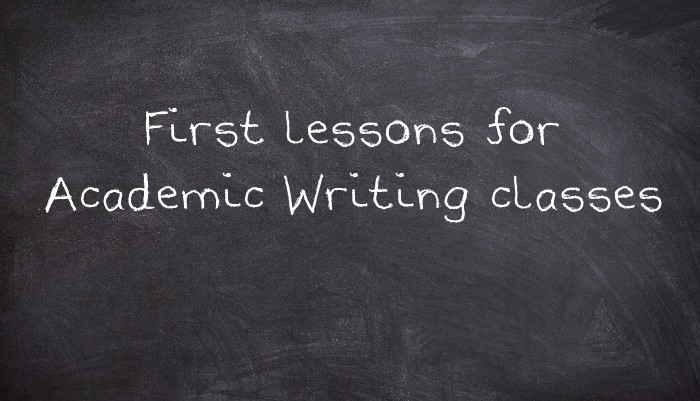 First lessons for
Academic Writing classes